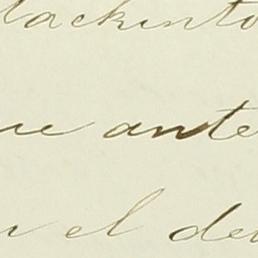 lackinto
ue ante
el de